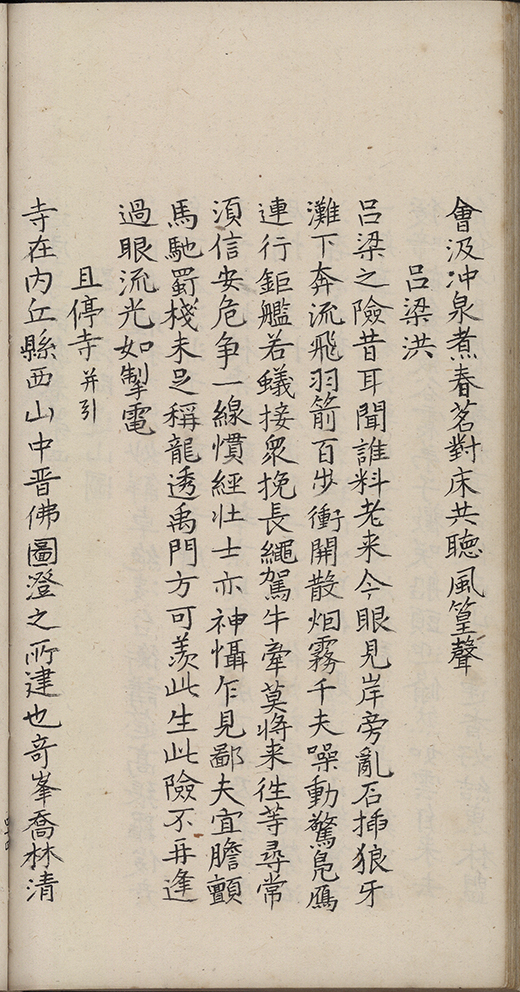 會汲冲泉煮春茗對床共聽風篁聲
吕梁洪
吕梁之險昔耳聞誰料老来今眼見岸旁亂石揷狼牙
灘下奔流飛羽箭百步衝開散烟霧千夫噪動驚鳬鴈
連行鉅艦若蟻接衆挽長繩駕牛牽莫將来往等尋常
湏信安危争一線慣經壮士亦神懾乍見鄙夫宜膽顫
馬馳蜀棧未足稱龍透禹門方可羨此生此險不再逢
過眼流光如掣電
且停寺并引
寺在内丘縣西山中晋佛圖澄之所建也竒峯喬林清